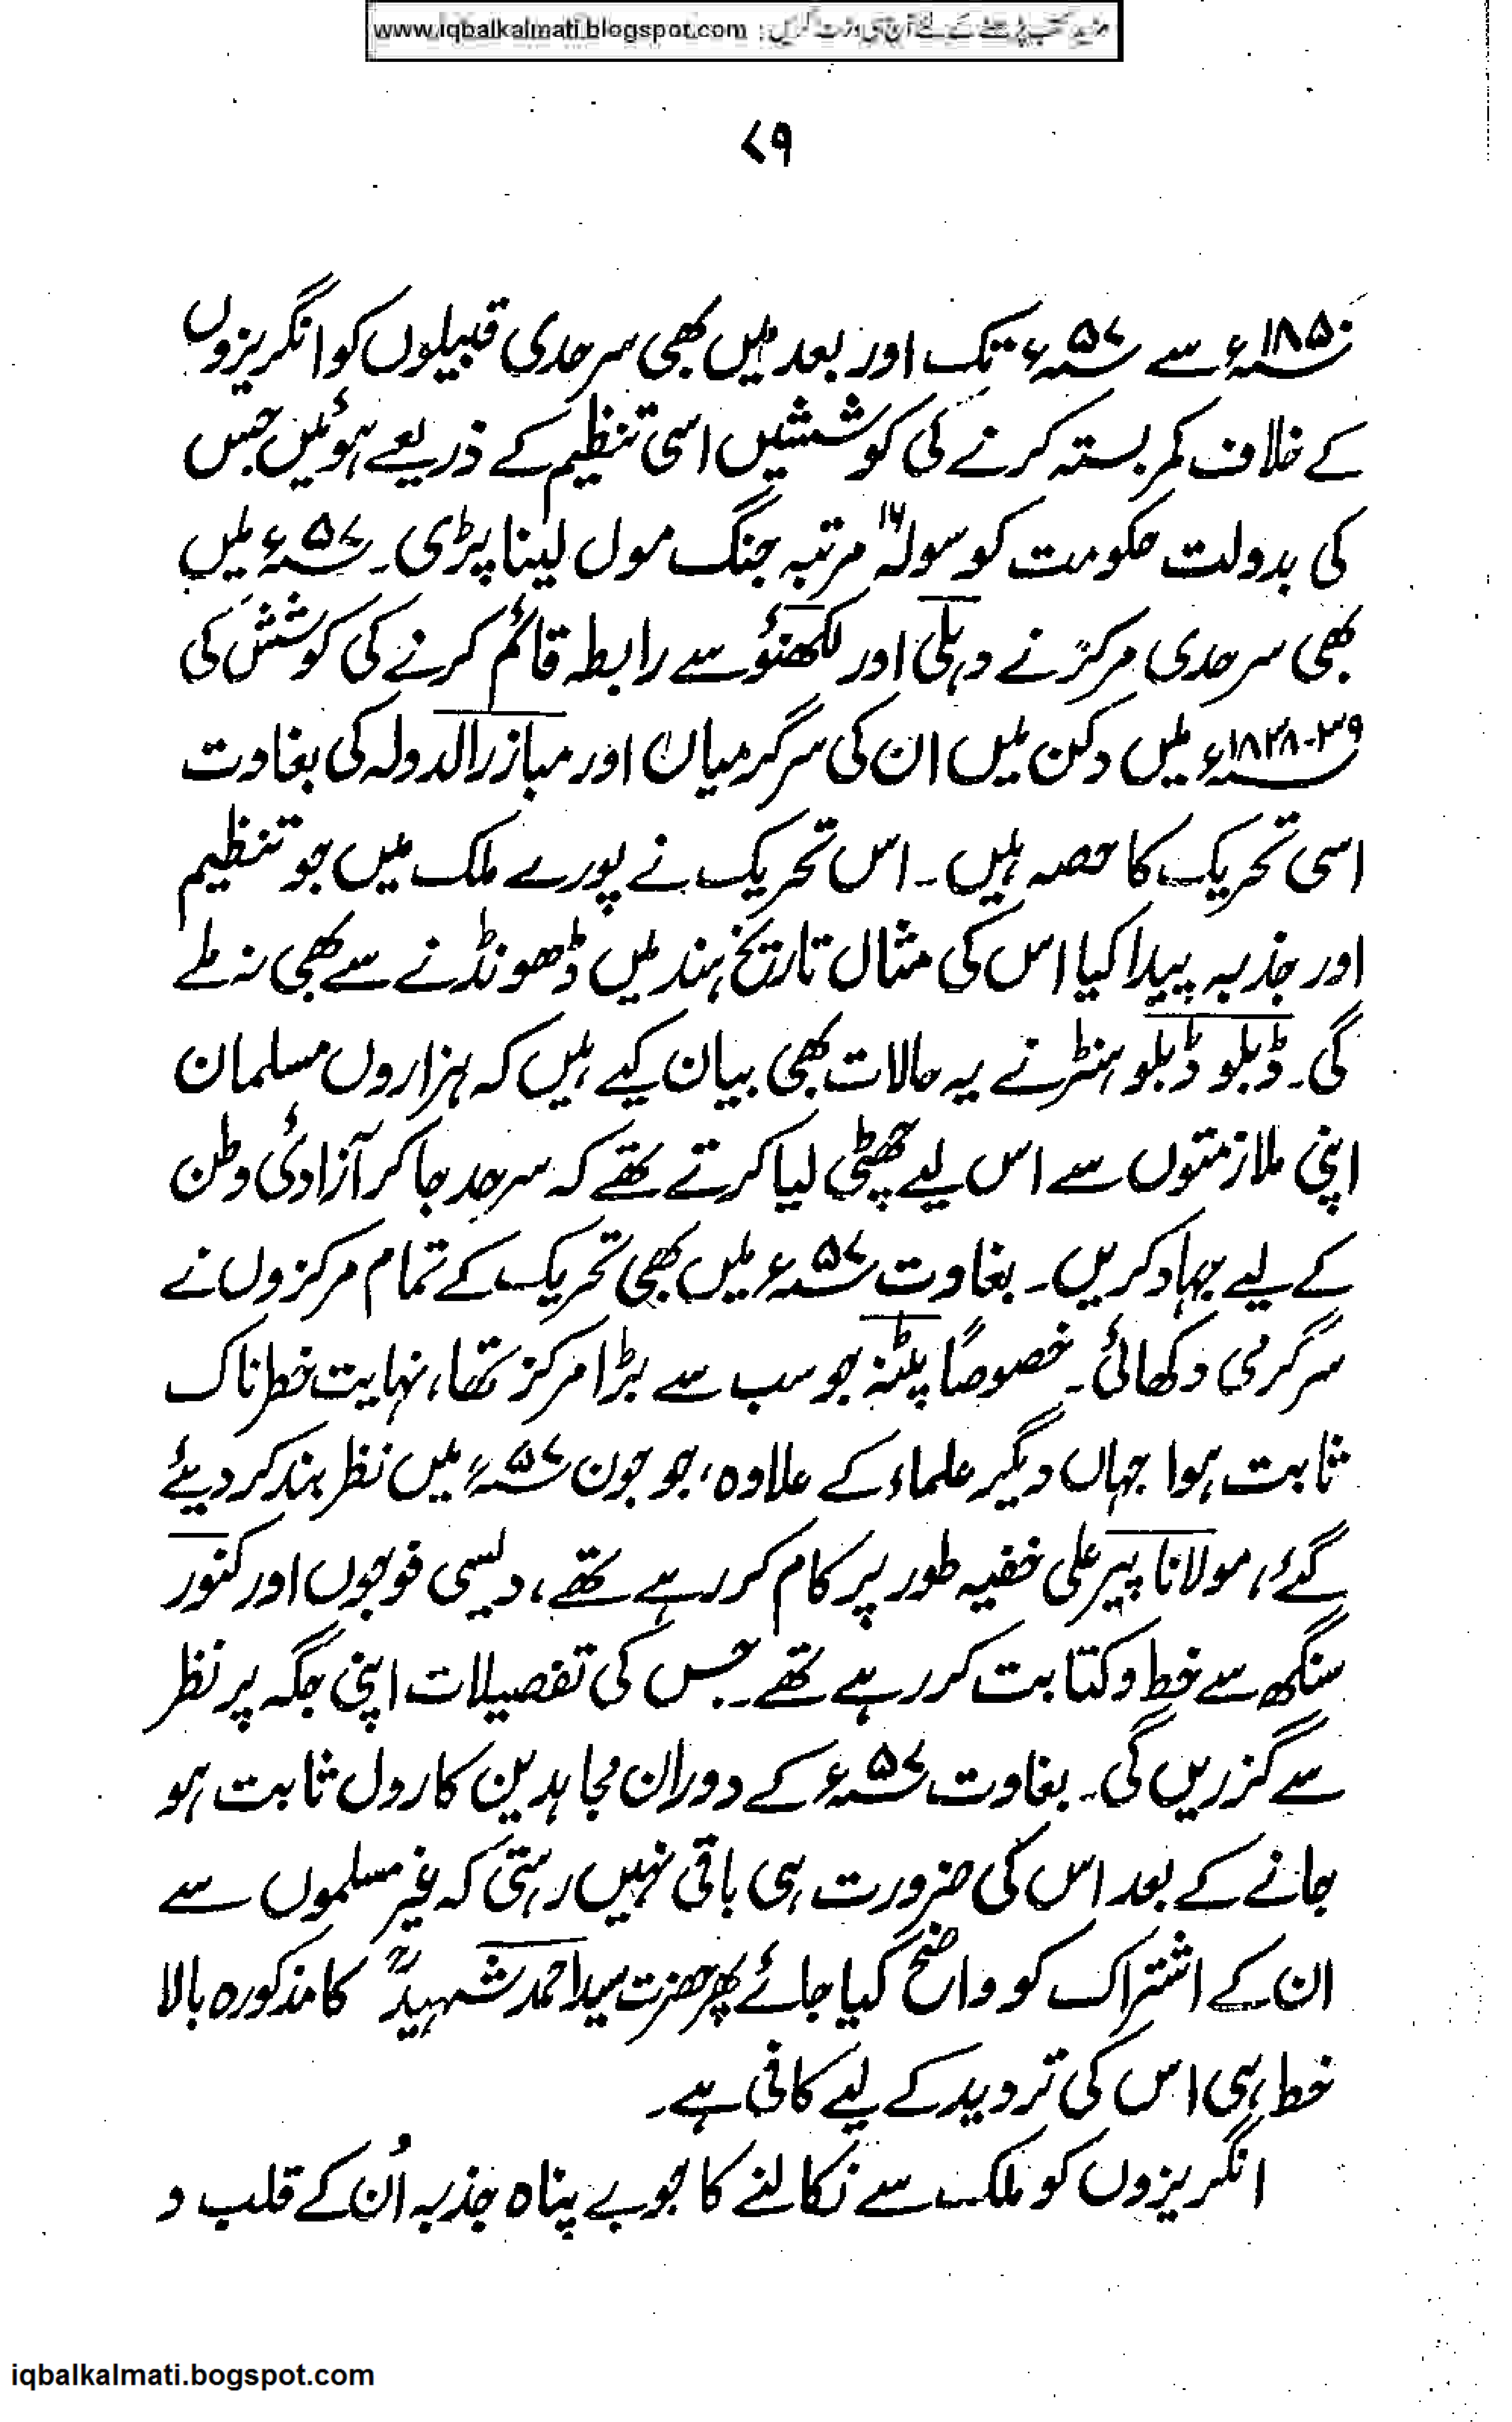 مزید کتب پڑھنے کے لئے آج ہی وزٹ کریں : www.iqbalkalmati.blogspot.com
۷۹
۱۸۵۰ء سے ۵۷ء تک اور بعد میں بھی سرحدی قبیلوں کو انگریزوں
کے خلاف کمر بستہ کرنے کی کوششیں اسی تنظیم کے ذریعے ہوئیں جس
کی بدولت حکومت کو سولہ ۱۶ مرتبہ جنگ مول لینا پڑی۔ ۵۷ء میں
بھی سرحدی مرکز نے دہلی اور لکھنؤ سے رابطہ قائم کرنے کی کوشش کی
۳۹-۱۸۳۸ء میں دکن میں ان کی سرگرمیاں اور مبازر الدولہ کی بغاوت
اسی تحریک کا حصہ ہیں۔ اس تحریک نے پورے ملک میں جو تنظیم
اور جذبہ پیدا کیا اس کی مثال تاریخ ہند میں ڈھونڈنے سے بھی نہ ملے
گی۔ ڈبلو ڈبلو ہنٹر نے یہ حالات بھی بیان کیے ہیں کہ ہزاروں مسلمان
اپنی ملازمتوں سے اس لیے چھٹی لیا کرتے تھے کہ سرحد جا کر آزادئ وطن
کے لیے جہاد کریں۔ بغاوت ۵۷ء میں بھی تحریک کے تمام مرکزوں نے
سرگرمی دکھائی۔ خصوصاً پٹنہ جو سب سے بڑا مرکز تھا، نہایت خطرناک
ثابت ہوا جہاں دیگر علماء کے علاوہ، جو جون ۵۷ء میں نظر بند کر دیئے
گئے، مولانا پیر علی خفیہ طور پر کام کر رہے تھے، دیسی فوجوں اور کنور
سنگھ سے خط و کتابت کر رہے تھے۔ جس کی تفصیلات اپنی جگہ پر نظر
سے گزریں گی۔ بغاوت ۵۷ء کے دوران مجاہدین کا رول ثابت ہو
جانے کے بعد اس کی ضرورت ہی باقی نہیں رہتی کہ غیر مسلموں سے
ان کے اشتراک کو واضح کیا جائے پھر حضرت سید احمد شہیدؒ کا مذکورہ بالا
خط ہی اس کی تردید کے لیے کافی ہے۔
انگریزوں کو ملک سے نکالنے کا جو بے پناہ جذبہ اُن کے قلب و
iqbalkalmati.bogspot.com